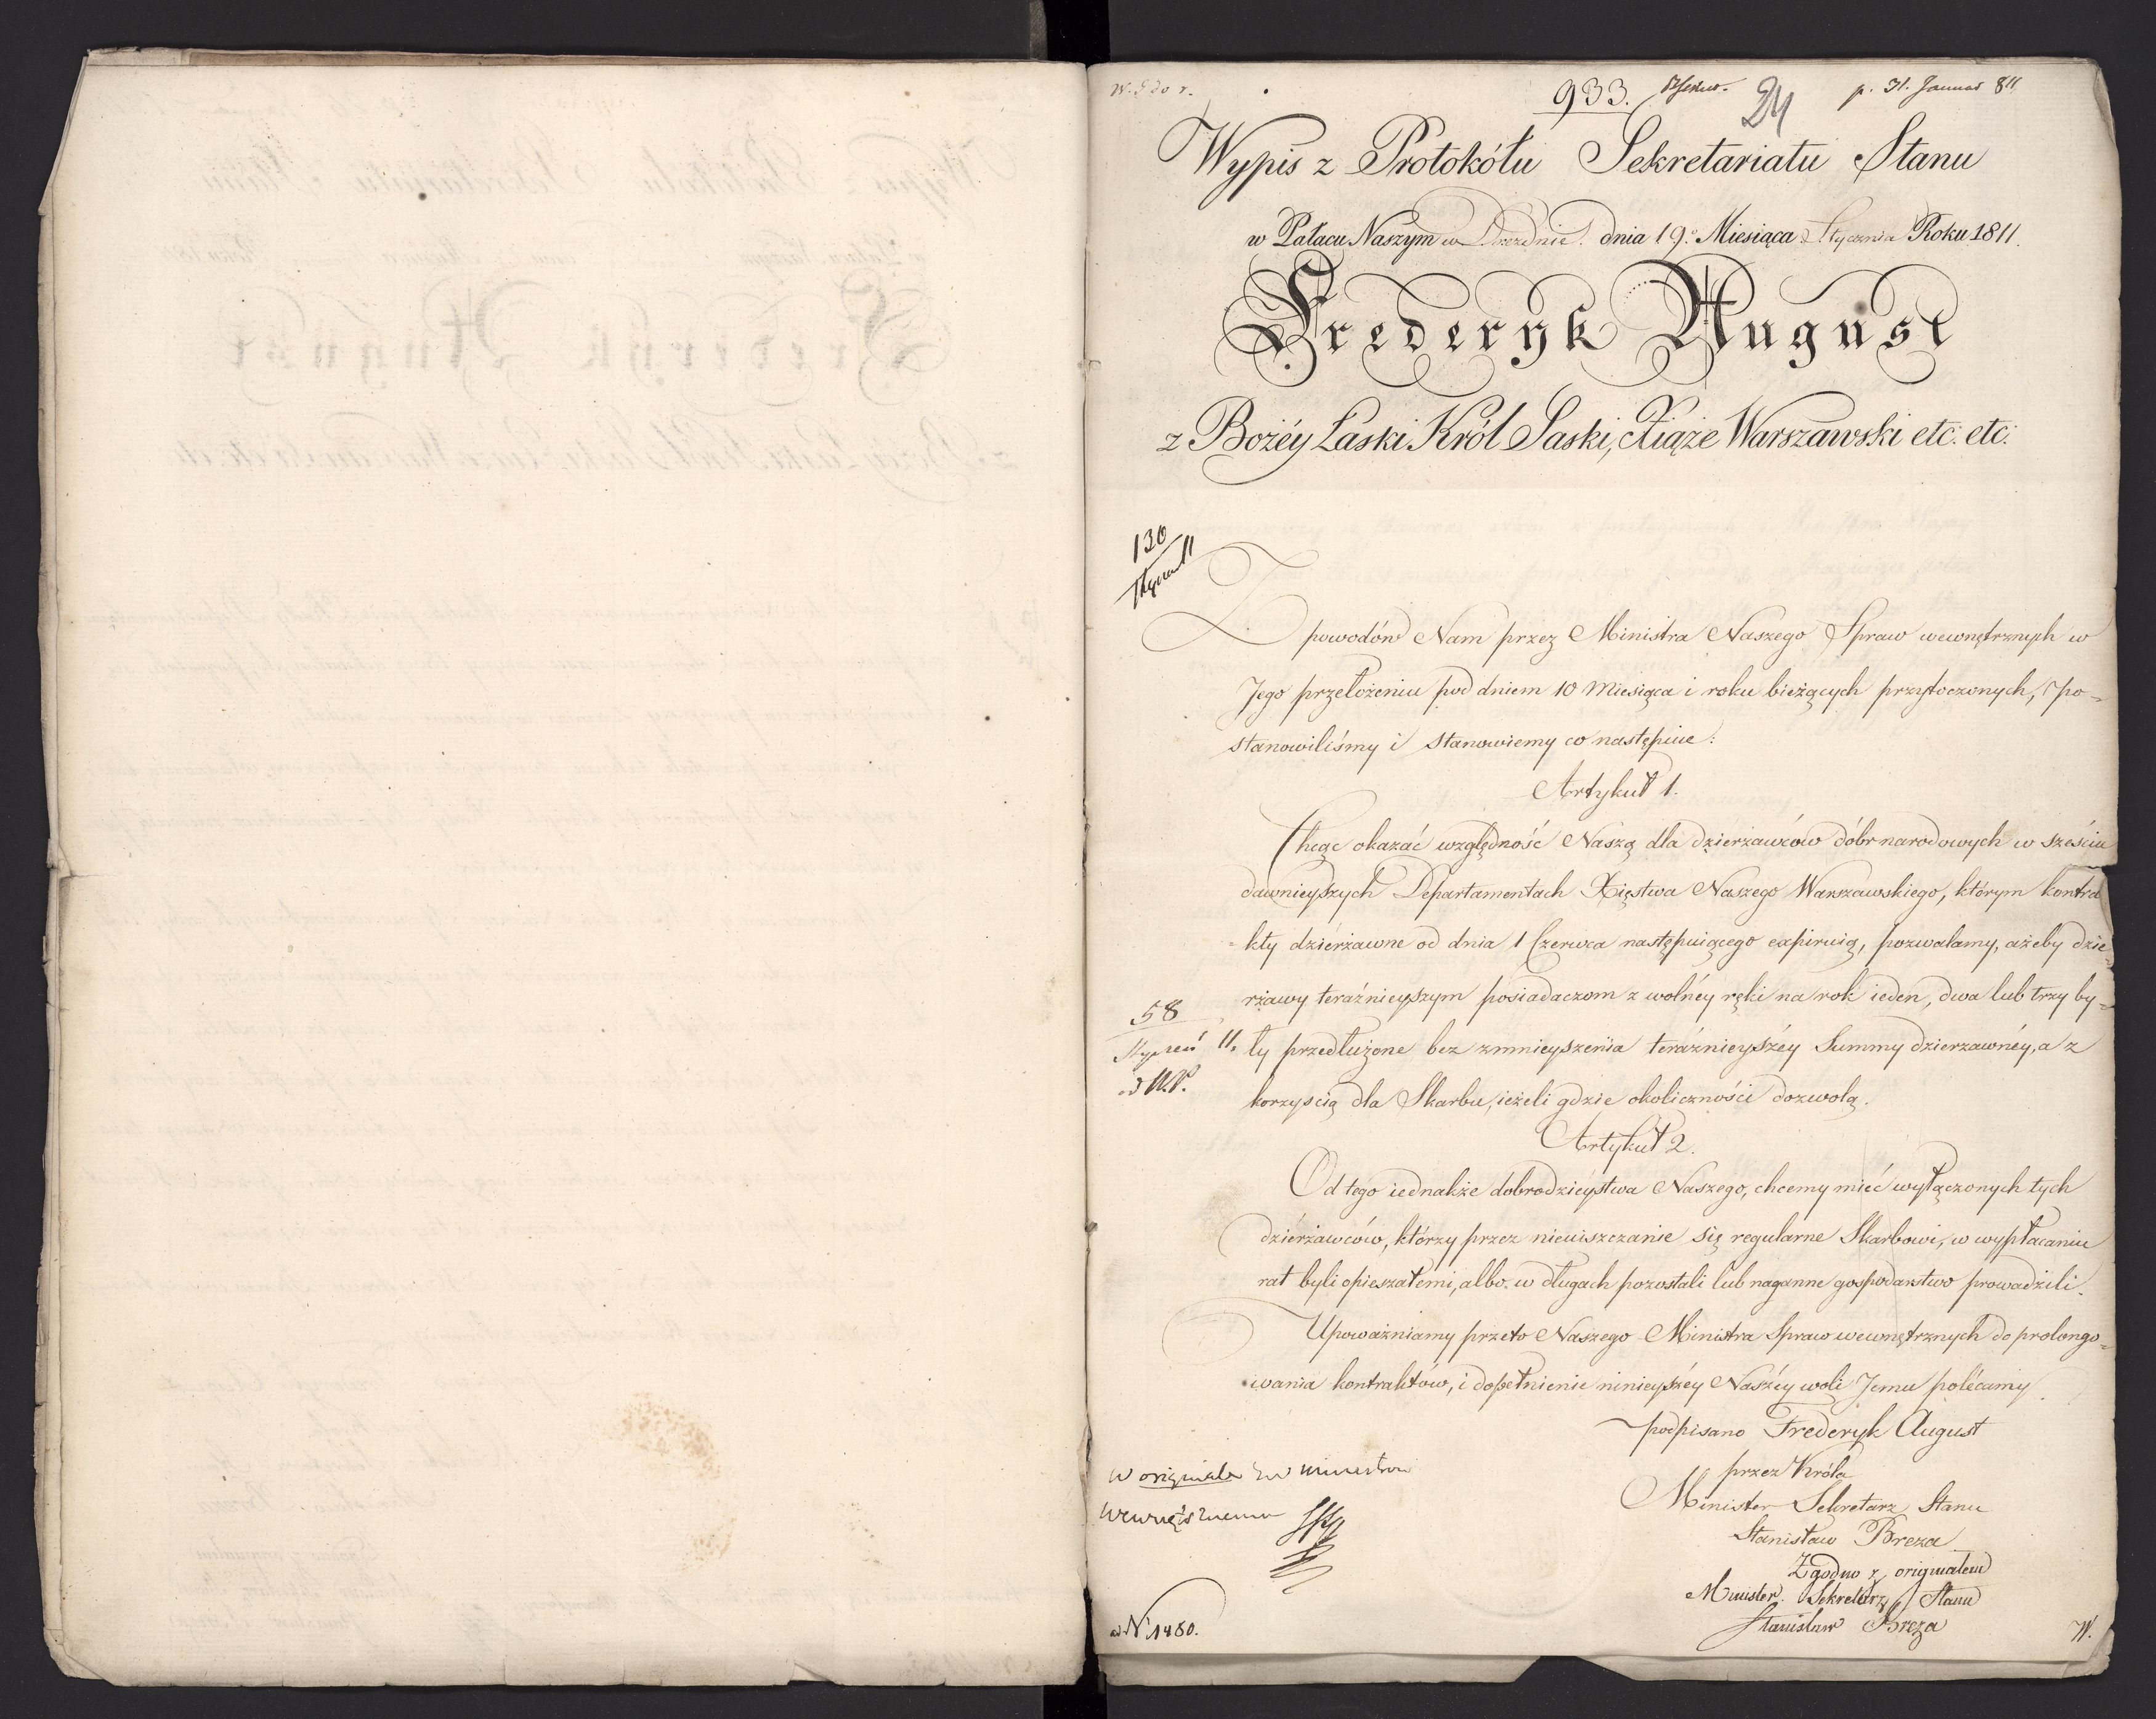 933.
24
p. 31. Januar 811
Wypis z Protokółu Sekretariatu Stanu
w Pałacu Naszym w Dreznie. dnia 19.º Miesiąca Stycznia Roku 1811.
Frederyk August
z Bożéy Łaski Król Saski, Xiąże Warszawski etc. etc.
130
Z powodów Nam przez Ministra Naszego Spraw wewnętrznych w
Jego przełożeniu pod dniem 10 Miesiąca i roku bieżących przytoczonych, po=
stanowiliśmy i stanowiemy co następuie:
Artykuł 1.
Chcąc okazać względność Naszą dla dzierżawców dóbr narodowych w sześciu
dawnieyszych Departamentach Xięstwa Naszego Warszawskiego, którym kontra
=kty dzierżawne od dnia 1 Czerwca następuiącego expiruią, pozwalamy, ażeby dzie
rżawy teraźnieyszym posiadaczom z wolnéy ręki na rok ieden, dwa lub trzy by=
ły przedłużone bez zmnieyszenia teraźnieyszéy Summy dzierżawnéy, a z
korzyścią dla Skarbu, ieżeli gdzie okoliczności dozwolą.
58
Styczeń 11.
Artykuł 2.
Od tego iednakże dobrodzieystwa Naszego, chcemy mieć wyłączonych tych
dziérżawców, którzy przez nieuiszczanie się regularne Skarbowi, w wypłacaniu
rat byli opieszałemi, albo w długach pozostali lub naganne gospodarstwo prowadzili.
Upoważniamy przeto Naszego Ministra Spraw wewnętrznych do prolongo=
wania kontraktów, i dopełnienie ninieyszéy Naszéy woli Jemu polécamy.
podpisano Frederyk August
przez Króla
Minister Sekretarz Stanu
Stanisław Breza
Zgodno z originałem
Minister Sekretarz Stanu
Stanisław Breza
w originale
ad Nº 1480.
W.